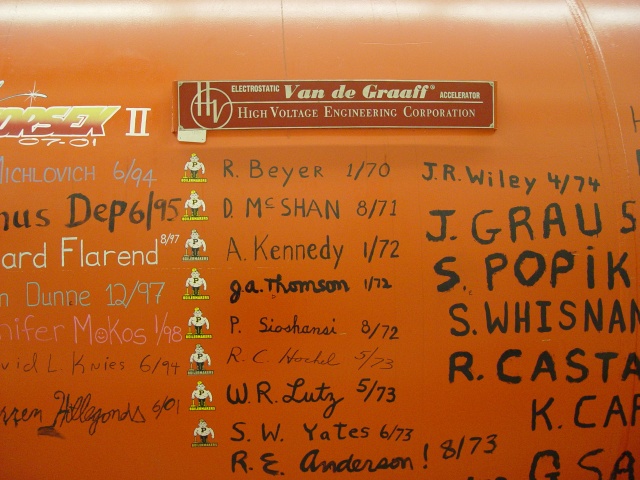 ELECTROSTATIC Van de Graaff® ACCELERATOR
HV HIGH VOLTAGE ENGINEERING CORPORATION
II
07.01
MICHLOVICH 6/94
Dep 6/95
ard Flarend 8/97
Dunne 12/97
nifer MoKos 1/98
vid L. Knies 6/94
Hollegonds 6/01
R. Beyer 1/70
D. McSHAN 8/71
A. Kennedy 1/72
J.A. Thomson 1/72
P. Sioshansi 8/72
R. C. Hochel 5/73
W.R. Lutz 5/73
S. W. Yates 6/73
R. E. Anderson! 8/73
J.R. Wiley 4/74
J. GRAU
S. POPIK
S. WHISNAN
R. CASTA
K. CAR
G SA